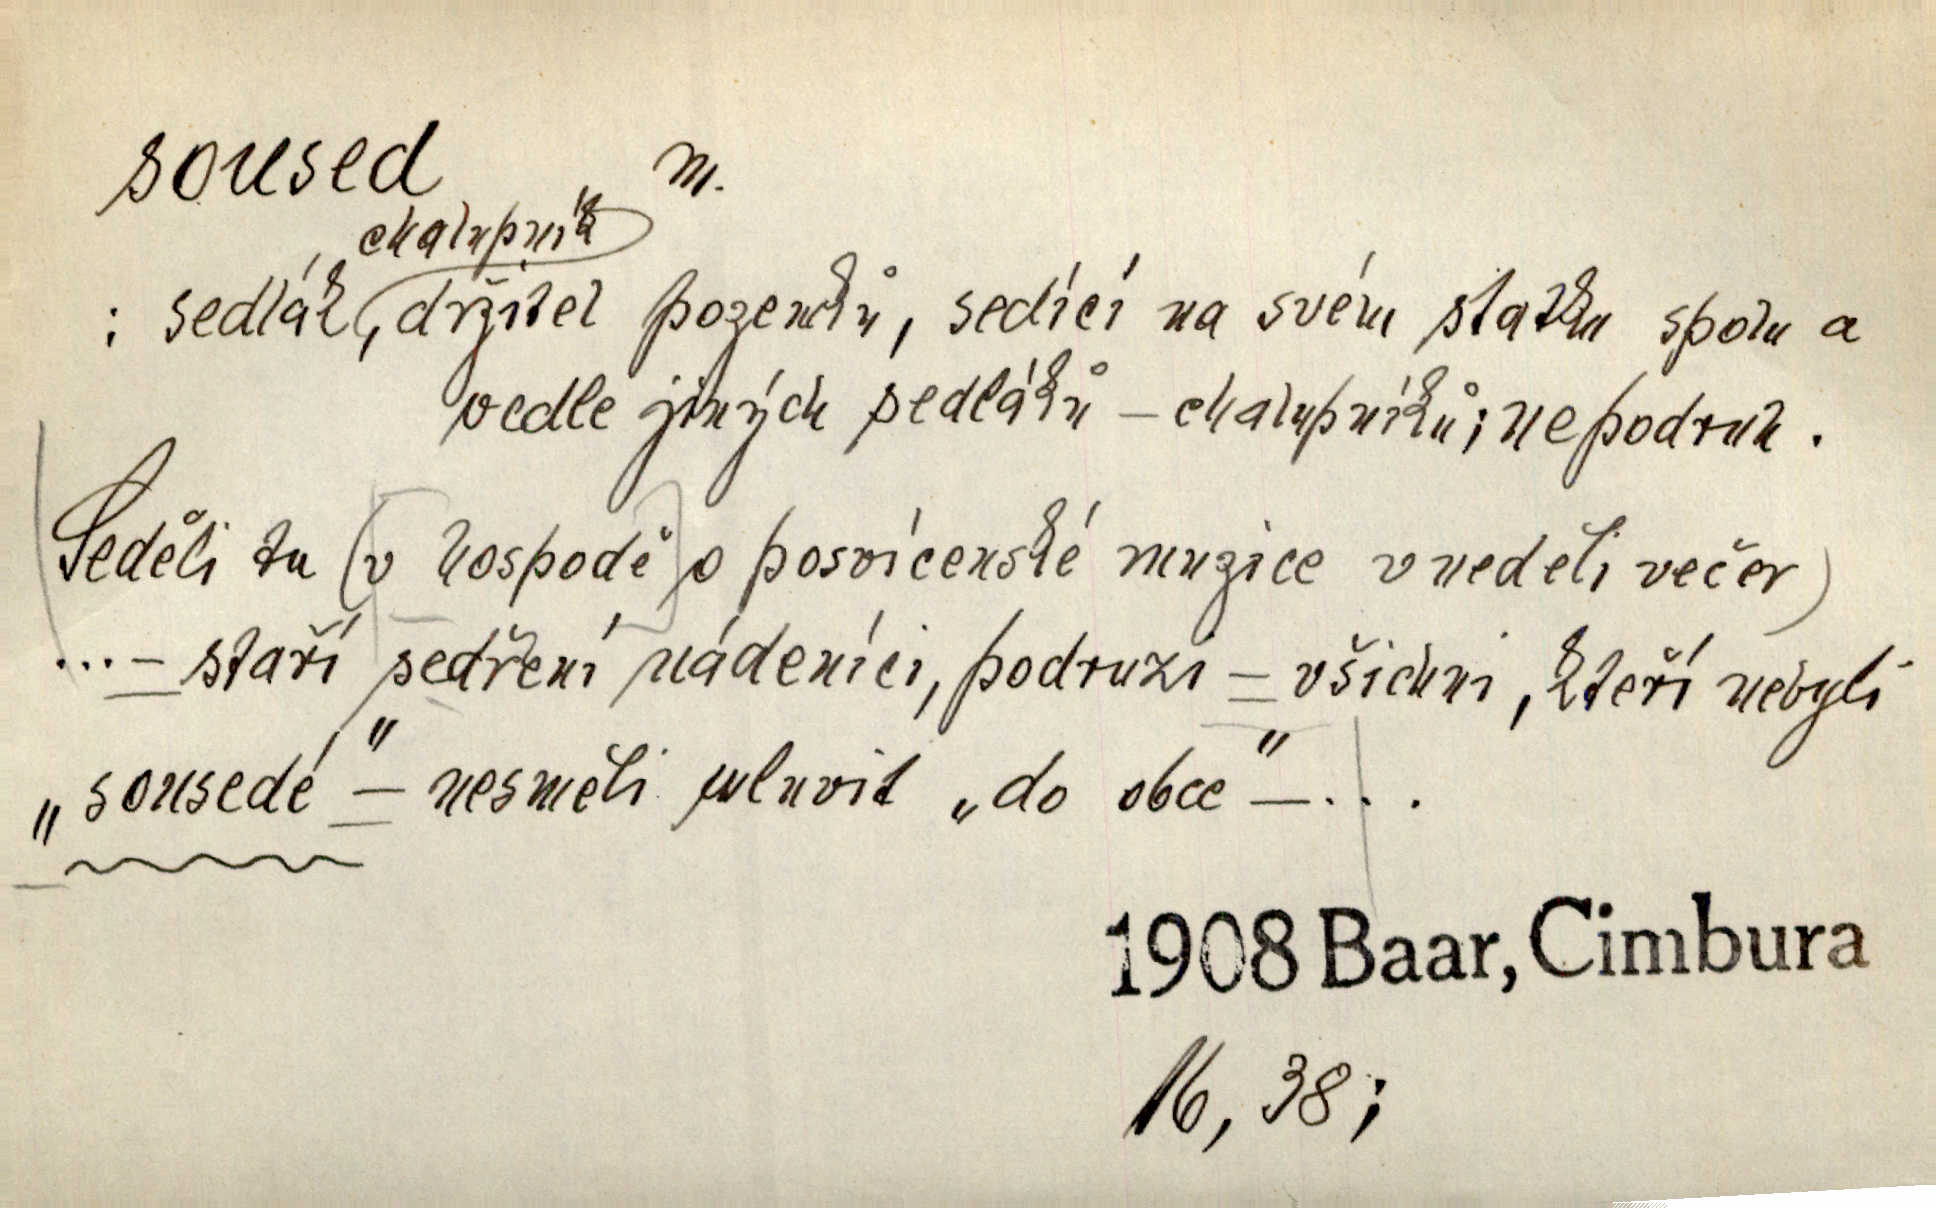 soused m.
chalupník
: sedlák, držitel pozemků, sedící na svém statku spolu a
vedle jiných sedláků – chalupníků; ne podruh.
Seděli tu (v hospodě o posvícenské muzice v neděli večer)
...– staří sedření nádeníci, podruzi – všichni, kteří nebyli
„sousedé" – nesměli mluvit „do obce" – ...
1908 Baar, Cimbura
16, 38;